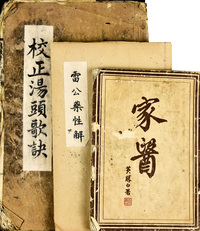 校正湯頭歌訣
雷公藥性解
家醫